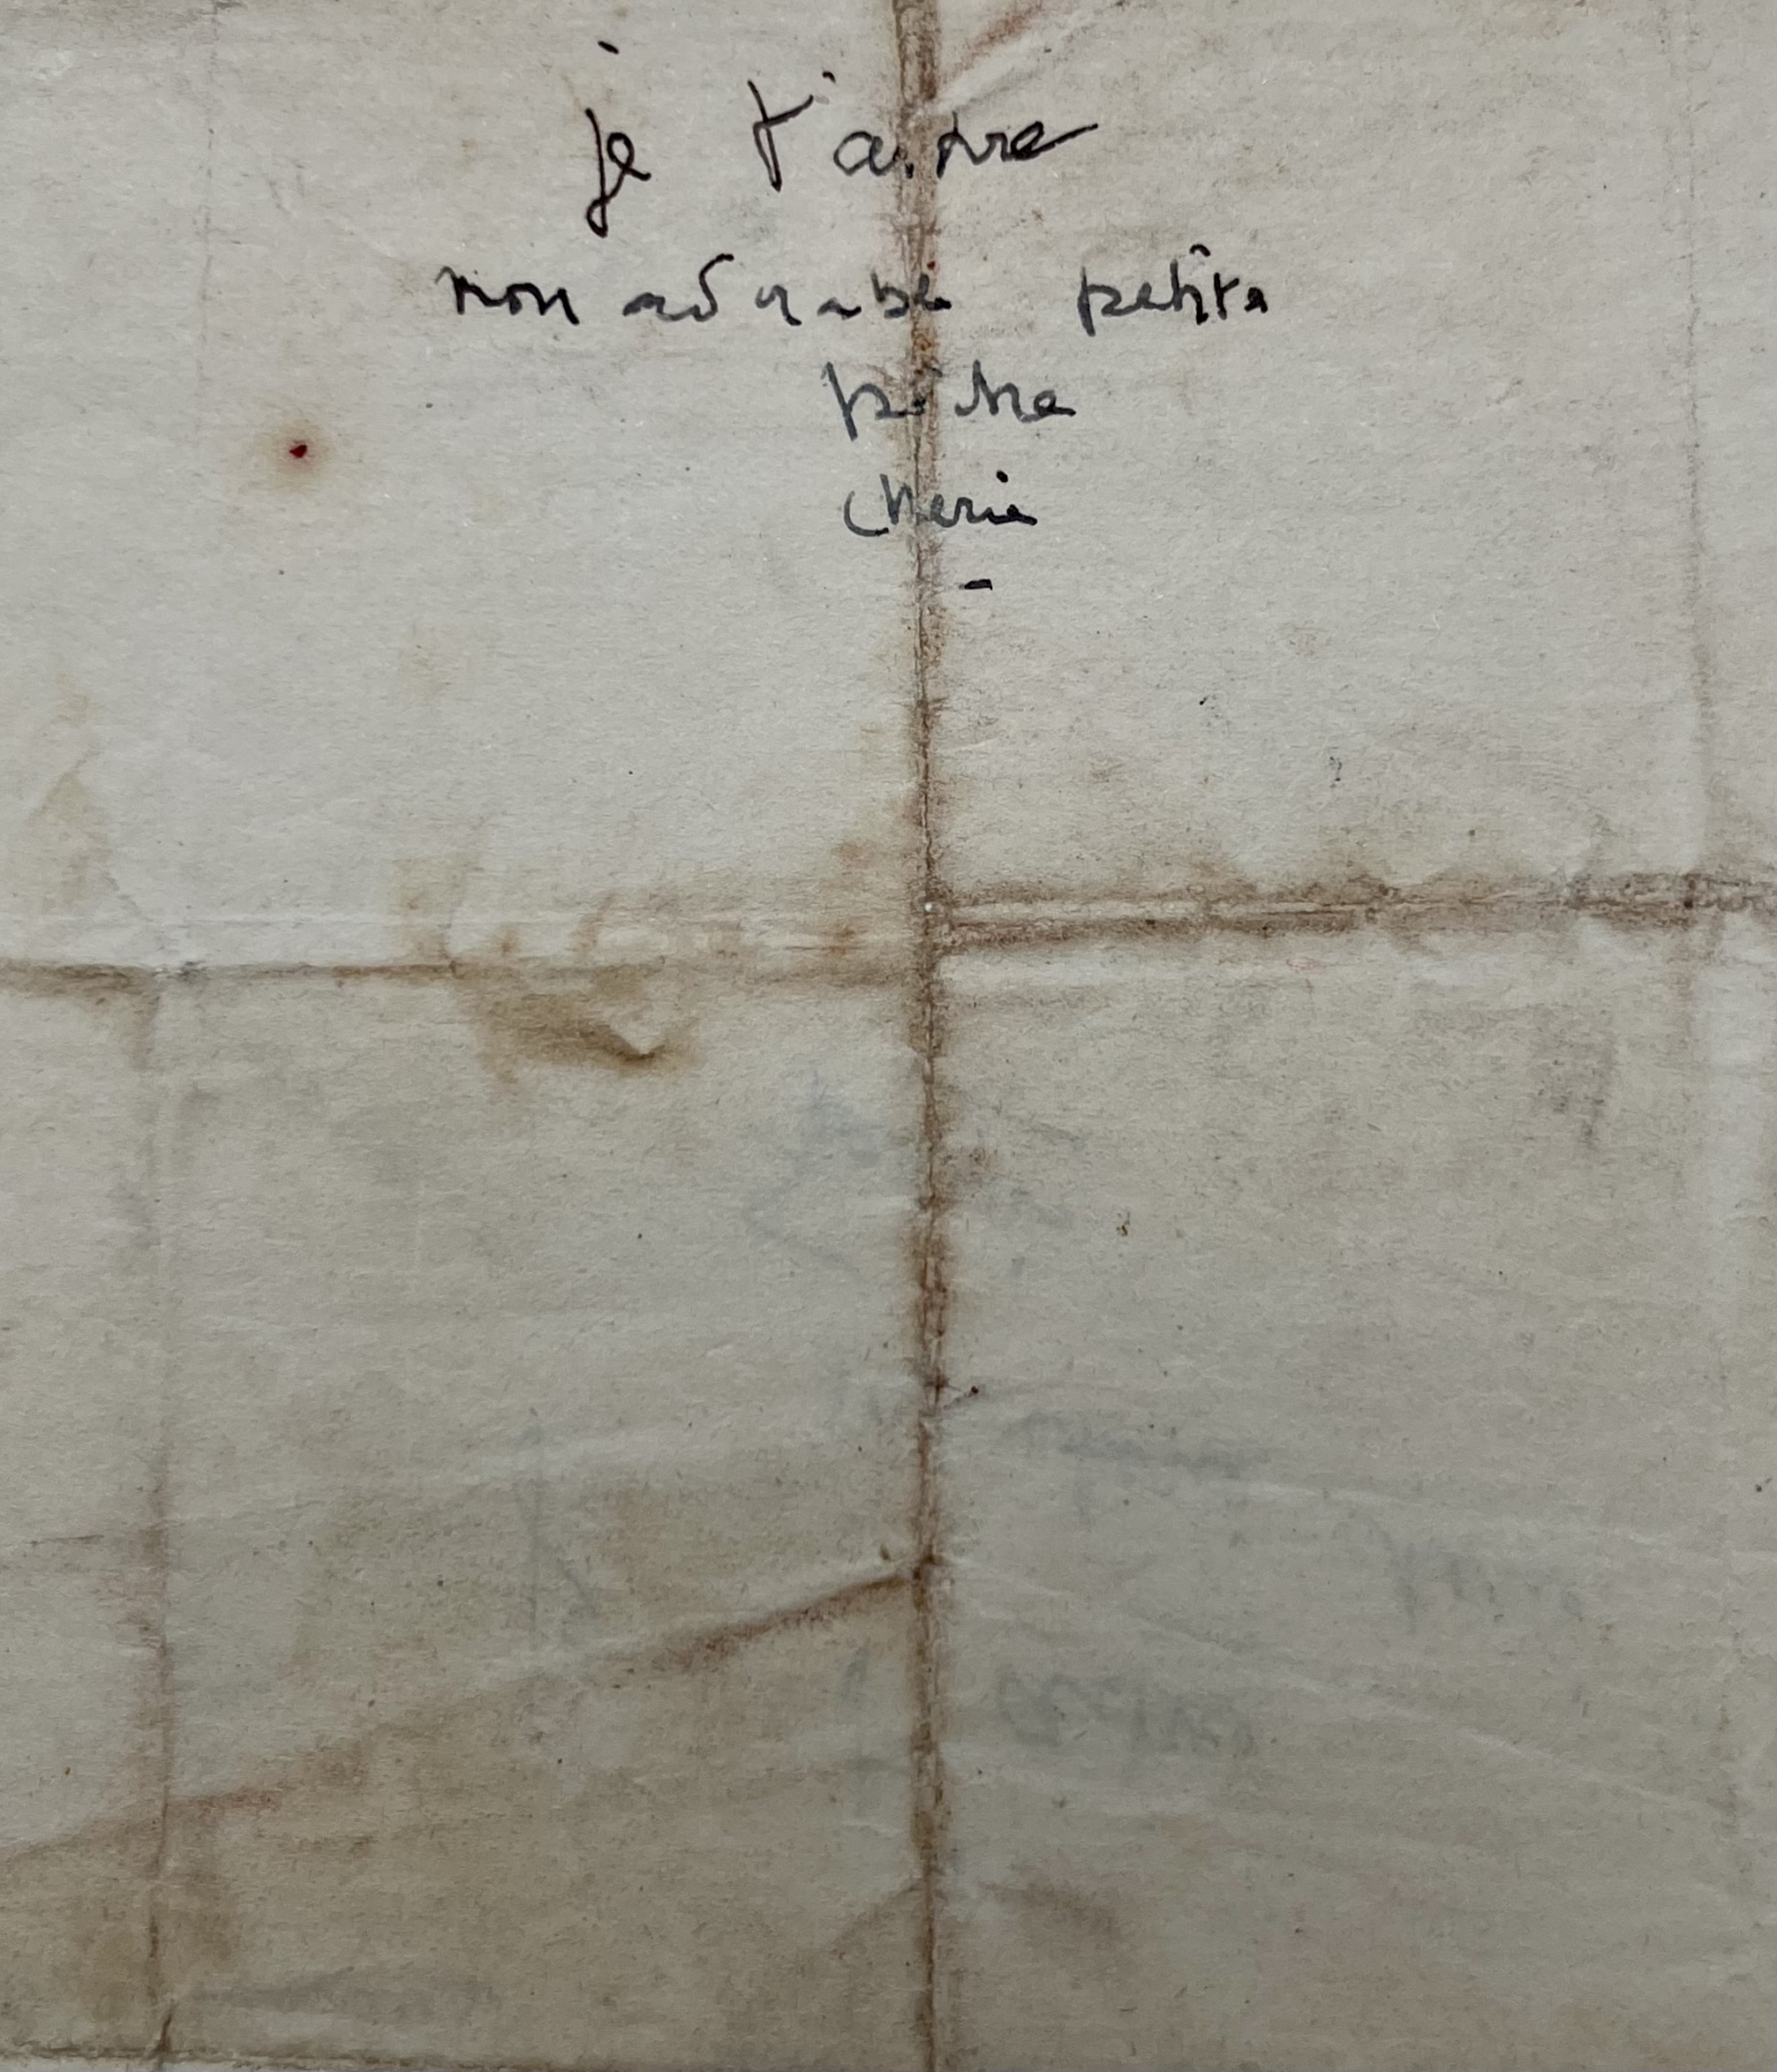 je t'aime
mon adorable petite
cherie